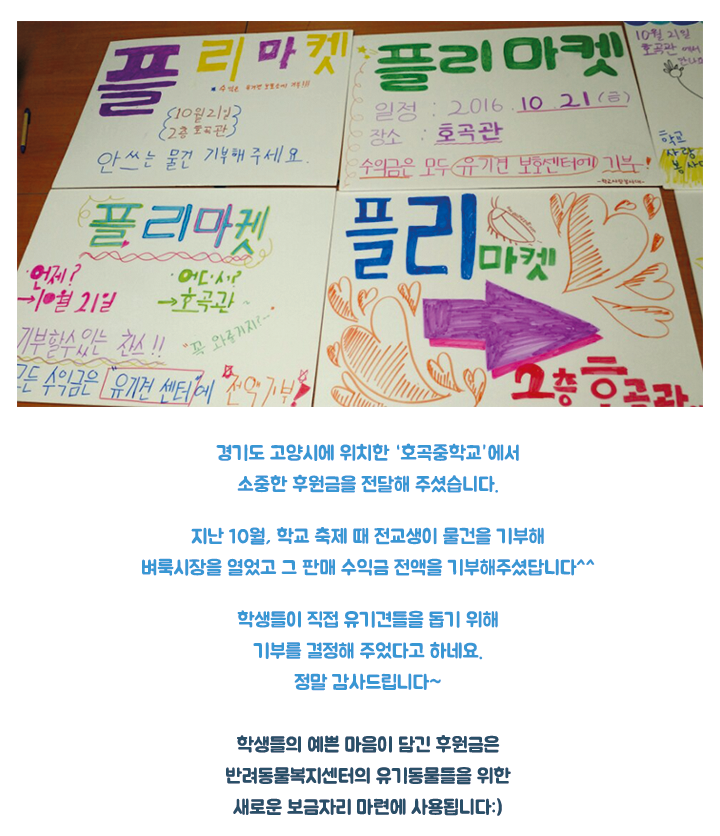 플리마켓
수익은 유기견 보호소에 기부!!!
10월 21일
2층 호곡관
안쓰는 물건 기부해주세요.
플리마켓
일정 : 2016. 10. 21 (금)
장소 : 호곡관
수익금은 모두 유기견 보호센터에 기부!
10월 21일
호곡관 에서
학교
사랑
봉사
플리마켓
언제?
→10월 21일
어디서?
→호곡관
기부할수있는 찬스!!
"꼭 와줄거지?~"
모든 수익금은 "유기견 센터"에 전액기부!
플리마켓
2층 호곡관
경기도 고양시에 위치한 '호곡중학교'에서
소중한 후원금을 전달해 주셨습니다.
지난 10월, 학교 축제 때 전교생이 물건을 기부해
벼룩시장을 열었고 그 판매 수익금 전액을 기부해주셨답니다^^
학생들이 직접 유기견들을 돕기 위해
기부를 결정해 주었다고 하네요.
정말 감사드립니다~
학생들의 예쁜 마음이 담긴 후원금은
반려동물복지센터의 유기동물들을 위한
새로운 보금자리 마련에 사용됩니다:)